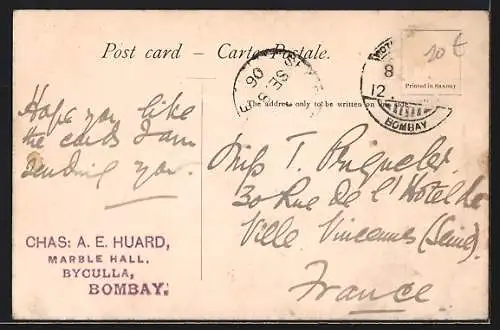 Post card — Carte Postale.
10 t
Printed in SAXONY
The address only to be written on
SE
06
8
12
BOMBAY
Hope you like
the cards I am
sending you.
Miss T.
30 Rue de l'Hotel de
Ville Vincennes (Seine)
France
CHAS: A. E. HUARD,
MARBLE HALL,
BYCULLA,
BOMBAY.